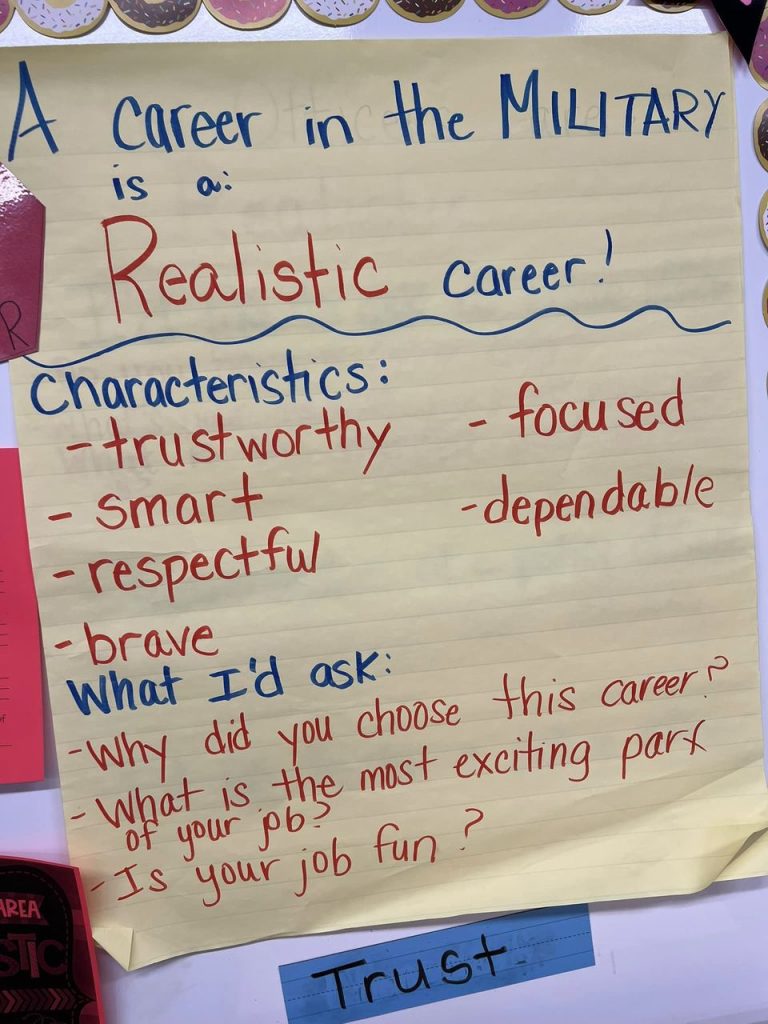 A Career in the MILITARY
is a:
Realistic career!
Characteristics:
- trustworthy
- focused
- smart
- dependable
- respectful
- brave
What I'd ask:
- Why did you choose this career?
- What is the most exciting part
of your job?
- Is your job fun?
Trust
R
AREA
STIC
of